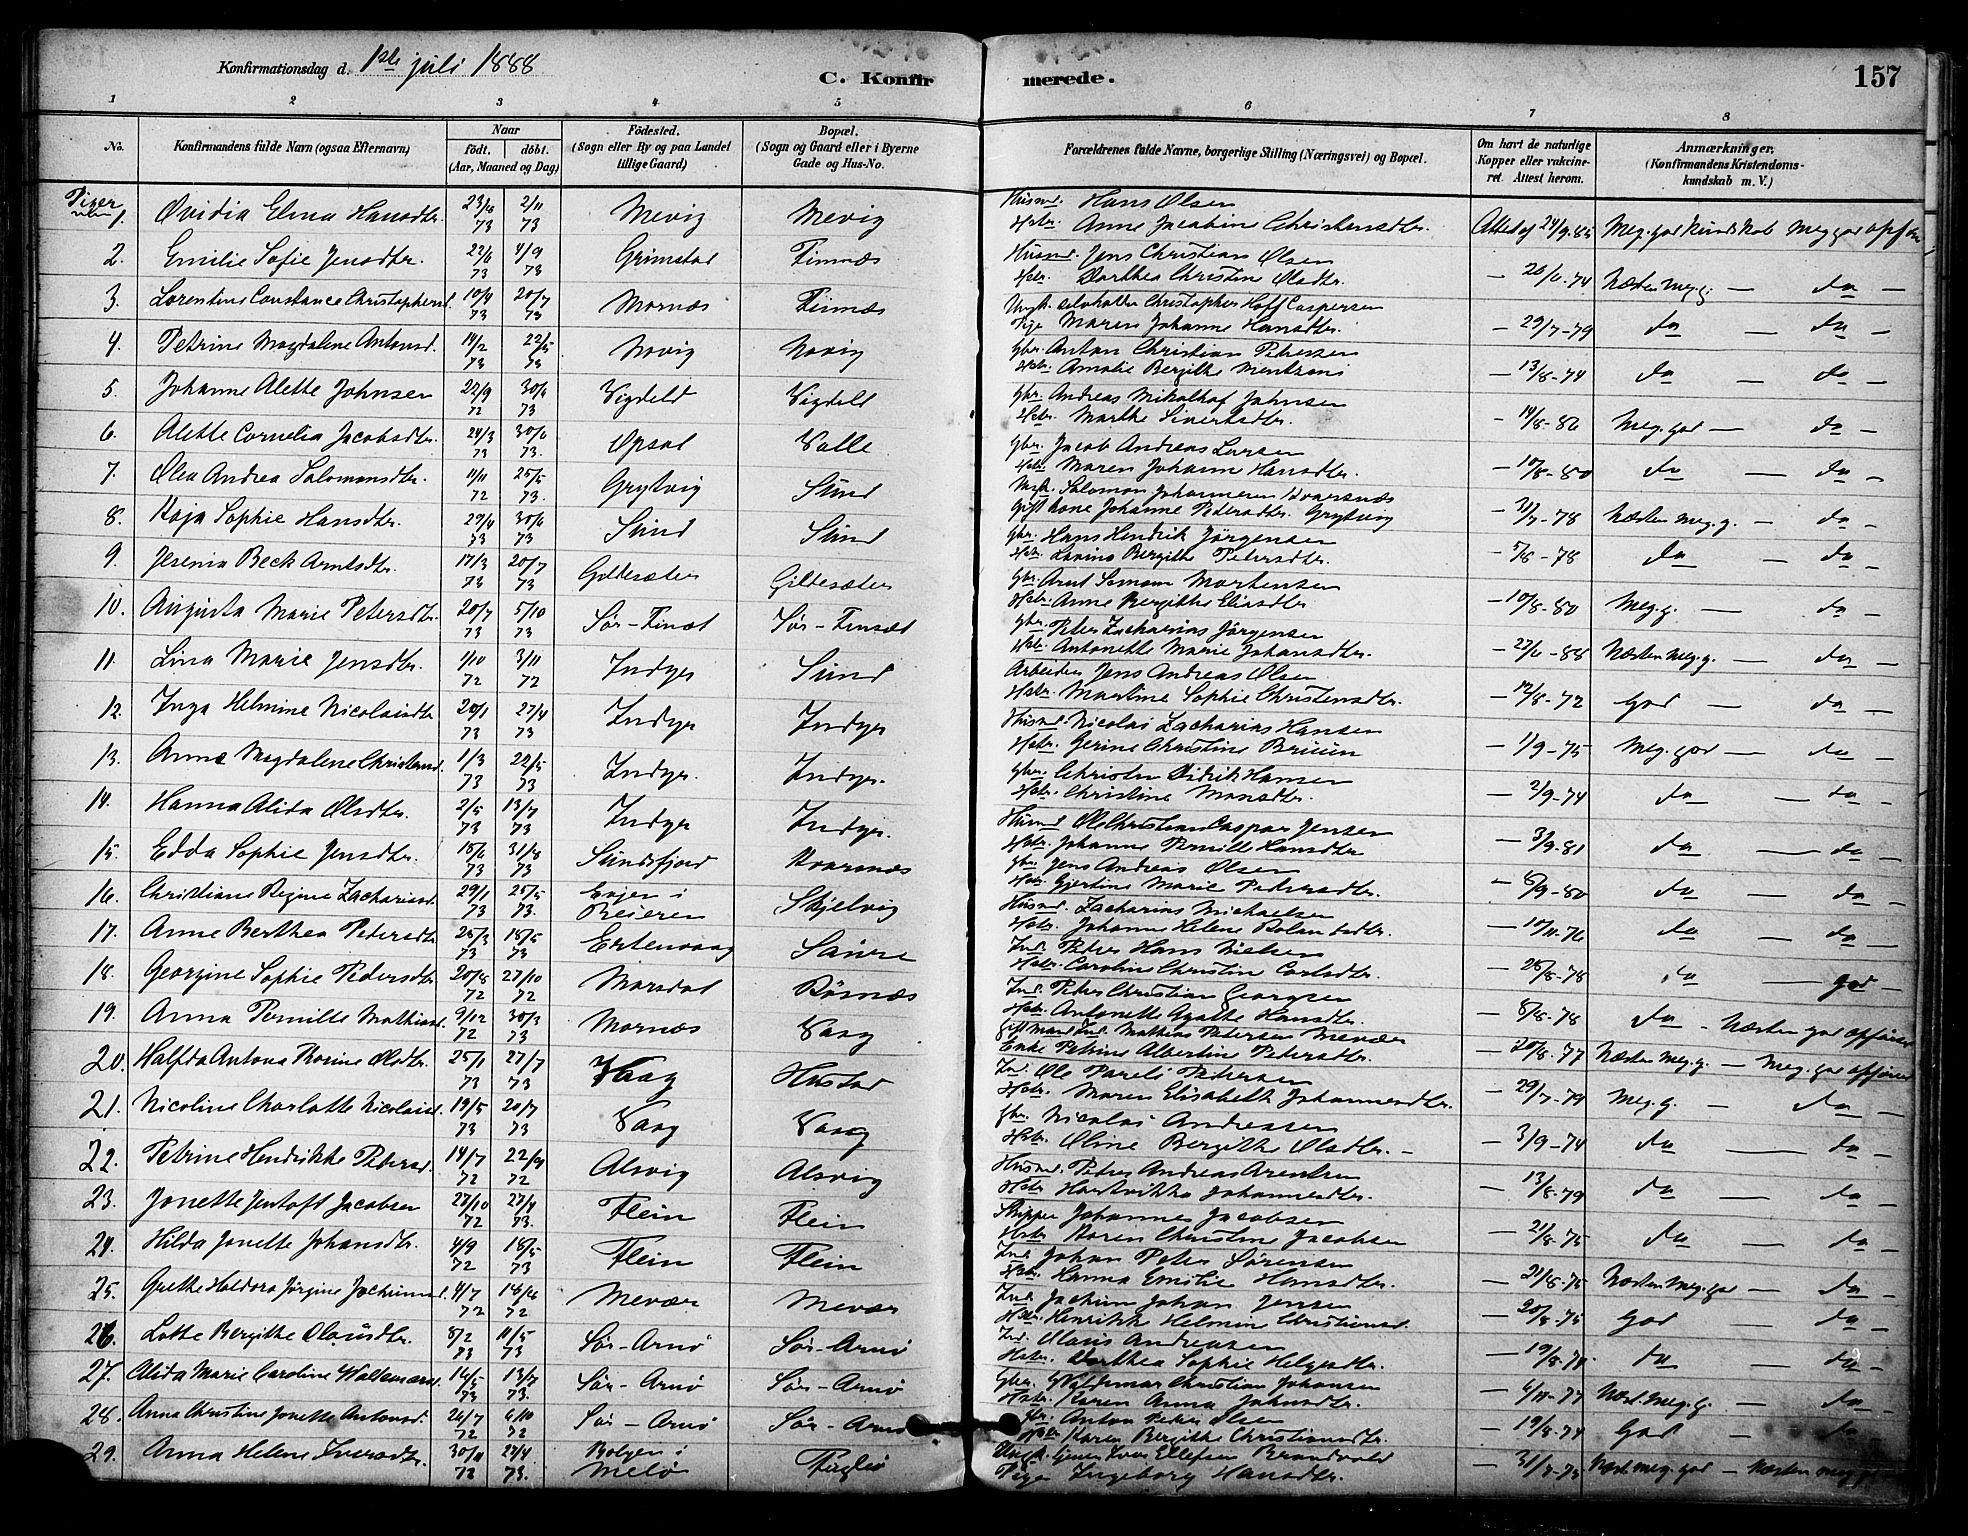 Konfirmationsdag d. 1ste juli 1888
C. Konfirmerede.
157
1 2 3 4 5 6 7 8
No.
Konfirmandens fulde Navn (ogsaa Efternavn)
Naar
født. døbt.
(Aar, Maaned og Dag)
Fødested.
(Sogn eller By og paa Landet
tillige Gaard)
Bopæl.
(Sogn og Gaard eller i Byerne
Gade og Hus-No.
Forældrenes fulde Navne, borgerlige Stilling (Næringsvei) og Bopæl.
Om havt de naturlige
Kopper eller vakcine-
ret. Attest herom.
Anmærkninger,
(Konfirmandens Kristendoms-
kundskab m. V.)
Piger
1. Ovidia Elma Hansdtr. 73 2/11 73 Mevig Mevig Husmd. Hans Olsen
Hstr. Anne Jacobine Christensdtr. Meg. god kundskab Meg. god
2. Emilie Sofie Jensdtr. 22/6 73 4/9 73 Grimstad Finnæs Husmd. Jens Christian Olsen
Hstr. Dorthea Christine Olsdtr. Næsten Meg. g. — do —
3. Lorentine Constance Christophersd. 10/4 73 20/7 73 Mornæs Finnæs Christopher Hoff Caspersen
Pige Maren Johanne Hansdtr. — 29/7-79 do — do —
4. Petrine Magdalene Antonsd. 14/2 73 22/5 73 Novig Novig Gbr. Anton Christian Petersen
Hstr. Amalie Bergithe — 13/8-74 do — do —
5. Johanne Alette Johnsen 22/9 72 73 Vigdeld Vigdeld Gbr. Andreas Nikolhof Johnsen
Hstr. Marthe Sivertsdtr. — 14/8-80 Meg. god — do —
6. Alette Cornelia Jacobsdtr. 24/3 73 30/6 73. Opsal Valle Gbr. Jacob Andreas Larsen
Hstr. Maren Johanne Hansdtr. — 10/8-80 do — do —
7. Olea Andrea Salomonsdtr. 11/11 72 25/5 73. Grytvig Sund Salomon Johannesen Kvarsnæs
Gift Kone Johanne Petersdtr. Grytvig — 78 Næsten Meg. g. — do —
8. Kaja Sophie Hansdtr. 29/4 73 30/6 73 Sund Sund Gbr. Hans Hendrik Jørgensen
Hstr. Lavina Bergithe Petersdtr. — 5/8-78 do — do —
9. Jesenia Beck Arntsdtr. 17/3 73 20/7 73 Gildesæter Gildesæter Gbr. Arnt Mortensen
Hstr. Anne Bergitha Eliasdtr — 10/8-80 Meg. g. — do —
10. Augusta Marie Petersdtr. 20/7 73 5/10 73 Sør-Finset Sør-Finset Gbr. Peter Zacharias Jørgensen
Hstr. Antonette Marie Johansdtr. — 88 Næsten meg. g. — do —
11. Lina Marie Jensdtr. 1/10 72 3/11 72 Indyr Sund Arbeider Jens Andreas Olsen
Hstr. Martine Sophie Christensdtr. — 12/8-72 God do —
12. Inga Helmine Nicolaisdtr 20/1 73 27/4 73 Indyr Indyr Husmd. Nicolai Zacharias Hansen
Hstr. Gerine Christine — 1/9-75 Meg. god — do —
13. Anne Magdalene Christensd. 1/3 73 22/5 73 Indyr Indyr. Gbr. Christen Didrik Hansen
Hstr. Christine Monsdtr. — 2/9-74 do — do —
14. Hanna Alida Olsdtr. 2/5 73 13/7 73 Indyr Indyr. Husmd Ole Christian Caspar Jensen
Hstr. Johanne Pernille Hansdtr — 3/9-81 do — do —
15. Edda Sophie Jensdtr. 15/6 73 31/8 73 Sundsfjord Kvarsnæs Gbr. Jens Andreas Olsen
Hstr. Gjertine Marie Pedersdtr. — 8/9-80 do — do —
16. Christiane Regine Zachariasd. 29/1 73 25/5 73. Evjen i
Beieren Skjelvig Husmd. Zacharias Michaelsen
Hstr. Johanna Helene — 10/11-76 do — do —
17. Anne Berthea Petersdtr 25/3 73 18/5 73 Ertenvaag Saura Ind. Peter Hans Nielsen
Hstr. Caroline Christine Carlsdtr. — 28/8-78 do — god —
18. Georgine Sophie Pedersdtr. 20/8 72 27/10 72 Morsdal Røsnæs Ind. Peter Christian Georgsen
Hstr. Antonette Agathe Hansdtr. — 8/8-78 do — Næsten god opførsel
19. Anna Pernille Mathiasd. 9/12 72 30/3 73 Mornæs Vaag Gift Mand Ind. Mathias Petersen Mevær
Enke Petrine Albertine Petersdtr. — 20/8-77 Næsten Meg. g. — Meg. god opførsel
20. Halfda Antona Karine Olsdtr. 25/1 73 27/7 73 Vaag Hustad Ind. Ole Pareli Petersen
Hstr. Maren Elisabeth Johannesdtr. — 29/7-79 Meg. g. — do —
21. Nicoline Charlotte Nicolaisd. 19/5 73 20/7 73 Vaag Vaag Gbr. Nicolai Andreasen
Hstr. Oline Bergithe Olsdtr. — — 3/9-74 do — do —
22. Petrine Hendrikke Petersd. 14/7 72 22/9 72 Alsvig Alsvig Husmd. Peter Andreas Arentsen
Hstr. Hartvikka Johannesdtr. — 13/8-79 do — do —
23. Jonette Jentoft Jacobsen 27/10 72 27/4 73. Flein Flein Skipper Johannes Jacobsen
Hstr. Karen Christine Jacobsen — 21/8-75 do — do —
24. Hilda Jonette Johansdtr. 4/9 72 18/5 73 Flein Flein Ind. Johan Peter Sørensen
Hstr. Hanna Emilie Hansdtr. — 21/8-75 Næsten Meg. god — do —
25. Grethe Haldora Jørgine Jochimsd. 4/7 72 72 Mevær Mevær Ind. Jochim Johan Jensen
Hstr. Henrikke Helmine Christiansd. — 20/8-75 God do —
26. Lotte Bergithe Olausdtr. 8/2 73 11/5 73 Sør-Arnø Sør-Arnø Ind. Olaus Andreasen
Hstr. Dorthea Sophie Helgesdtr. — 19/8-75 do — do —
27. Alida Marie Caroline Waldemarsd. 14/5 73 13/7 73. Sør-Arnø Sør-Arnø Gbr. Waldemar Christian Johansen
Hstr. Karen Anna Johnsdtr. — 4/11-77 Næst. Meg. g. — do —
28. Anna Christine Jonette Antonsd. 26/7 72 6/10 72 Sør-Arnø Sør-Arnø Gbr. Anton Peder Olsen
Hstr. Karen Bergithe Christiansdtr. — 19/8-74 God do —
29. Anna Helene Iversdtr. 30/11 72 27/4 73. Bolgen i
Melø Fuglø Iver Ellefsen Brandvold
Pige Ingeborg Hansdtr. — 31/7-73 Næst. meg. god — Næsten meg g.